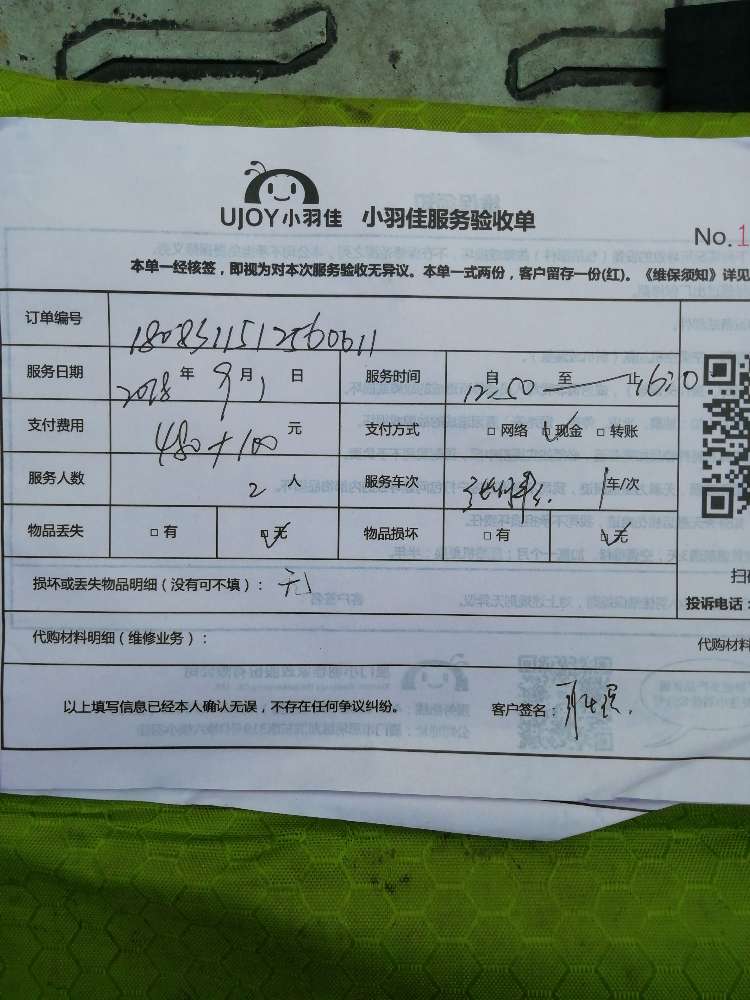 UJOY小羽佳 小羽佳服务验收单
No.1
本单一经核签，即视为对本次服务验收无异议。本单一式两份，客户留存一份(红)。《维保须知》详见
订单编号 1808311512560011
服务日期 2018年9月1日 服务时间 自12:50至 止1620
支付费用 480+100元 支付方式 □网络 ☑现金 □转账
服务人数 2人 服务车次 1车/次
物品丢失 □有 ☑无 物品损坏 □有 ☑无
损坏或丢失物品明细（没有可不填）：无
扫
投诉电话：
代购材料明细（维修业务）：
代购材料
以上填写信息已经本人确认无误，不存在任何争议纠纷。 客户签名：